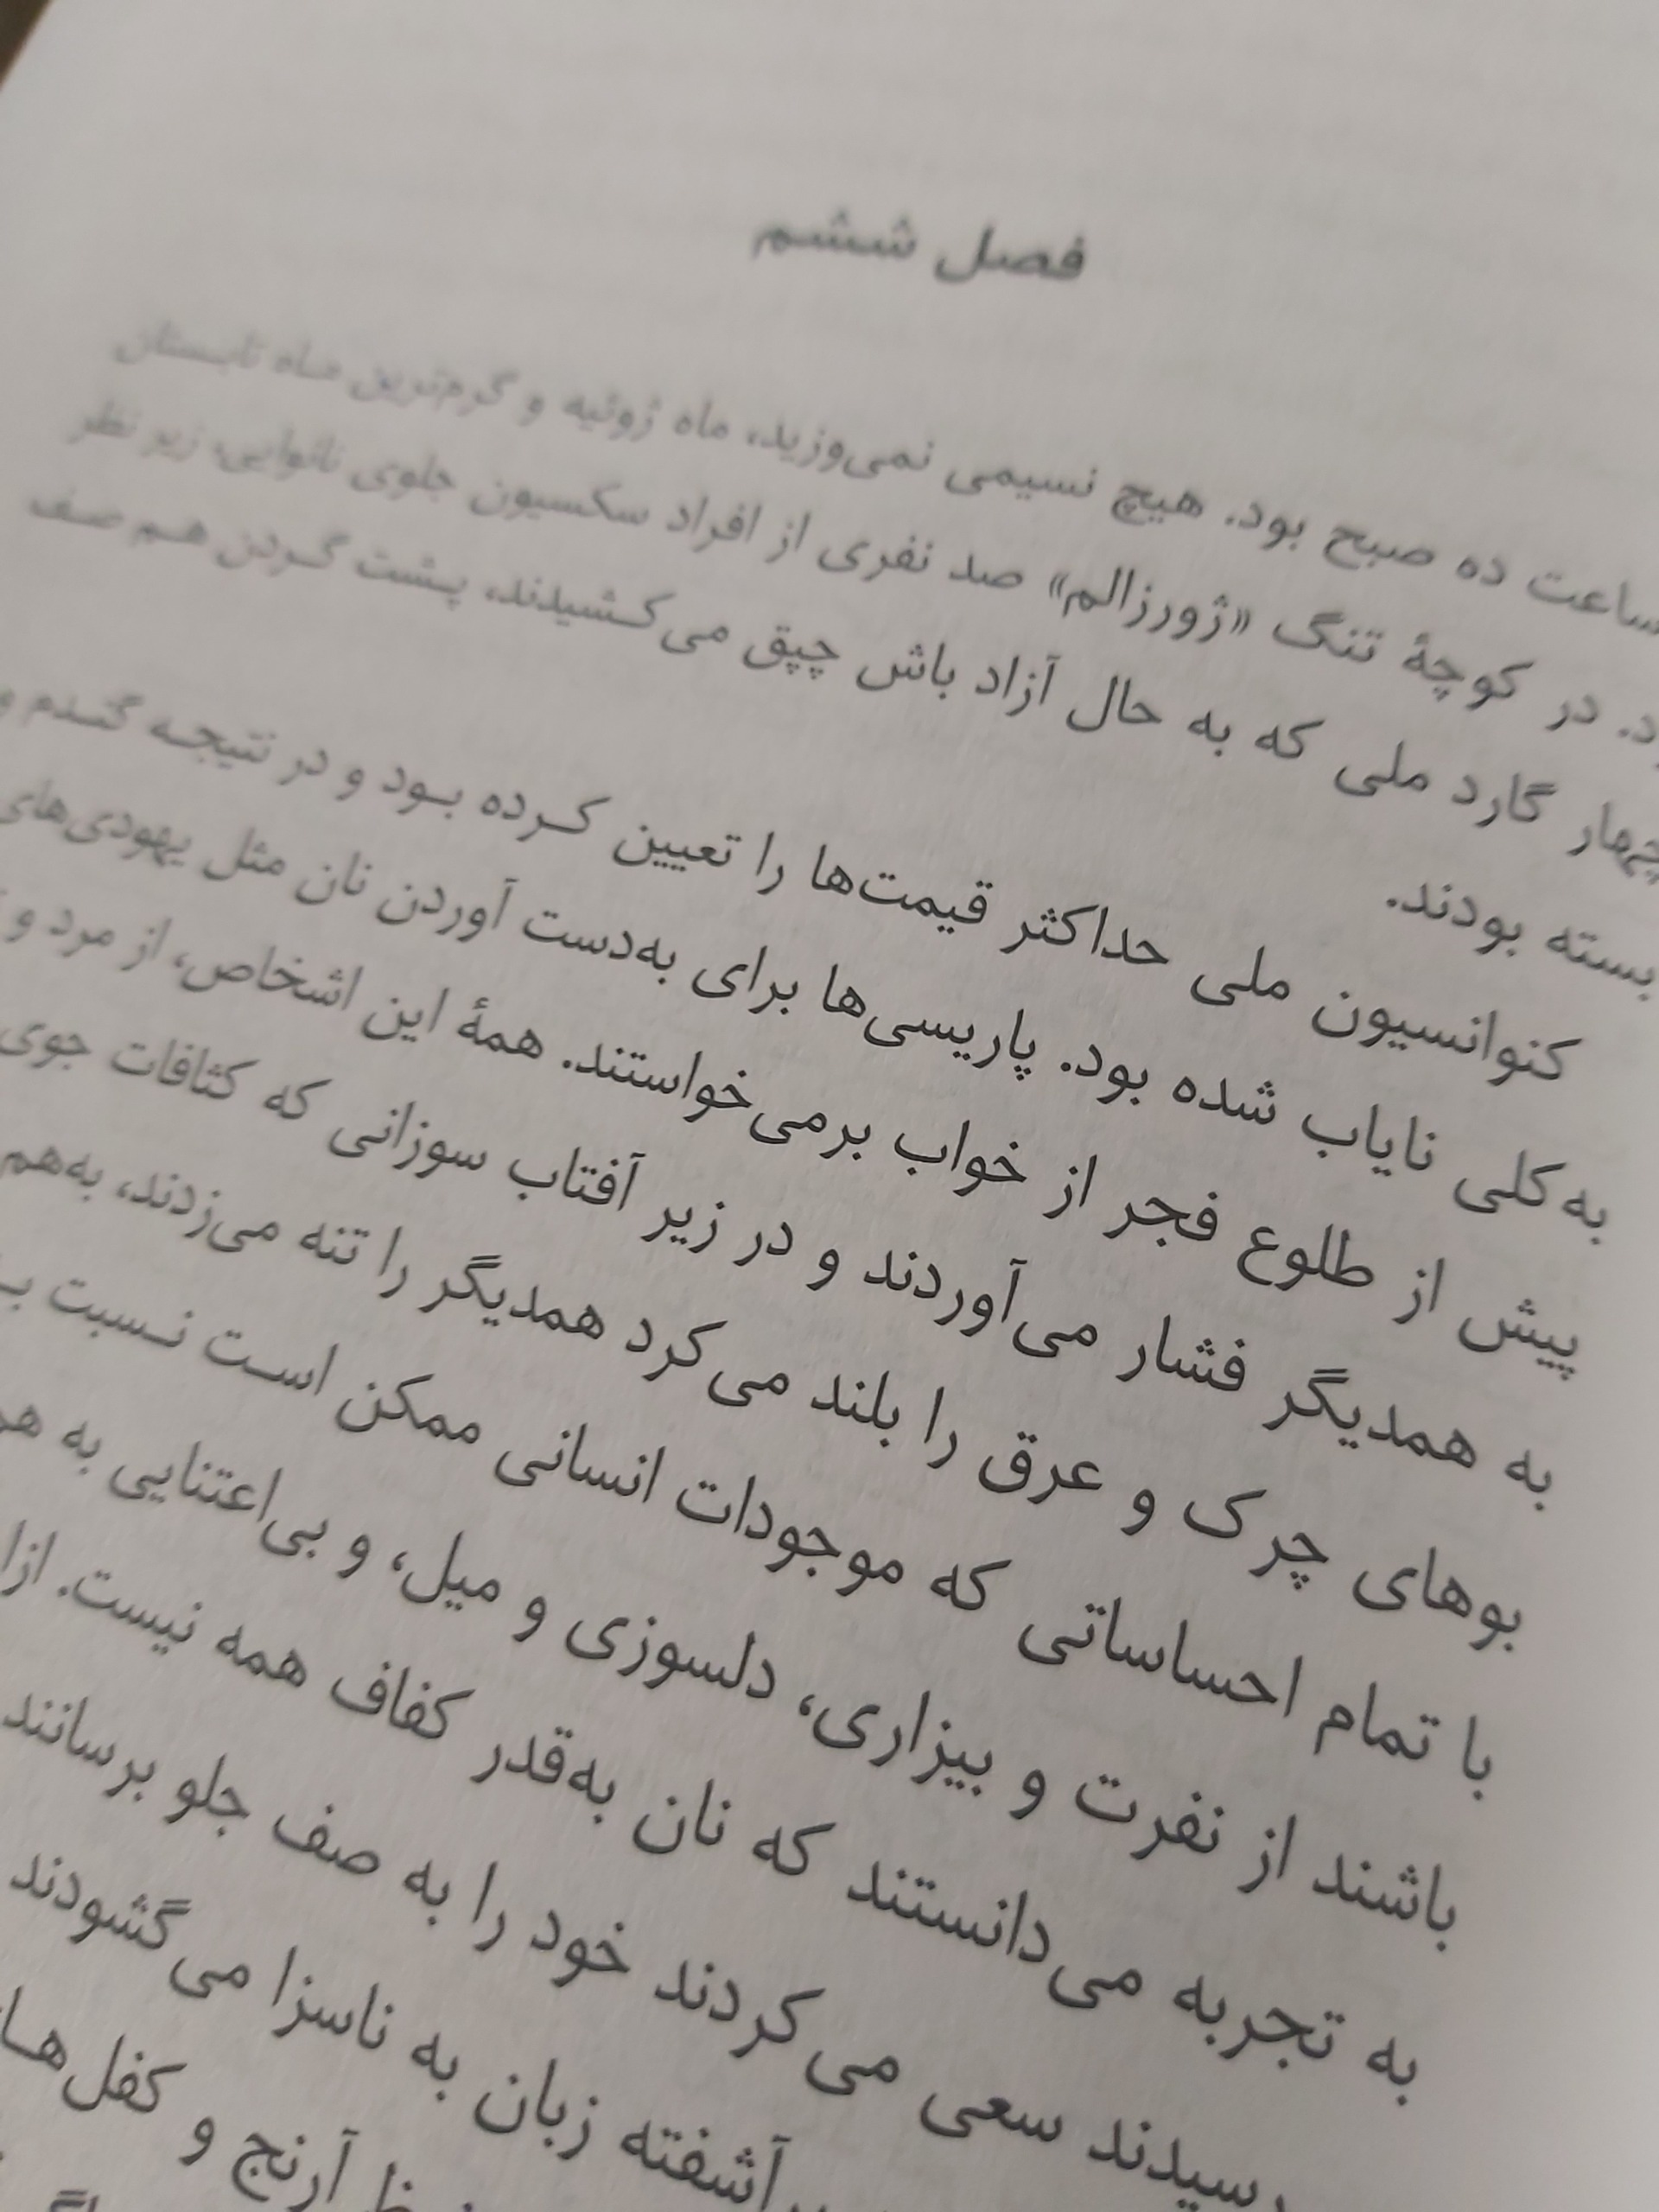 فصل ششم
ساعت ده صبح بود. هیچ نسیمی نمی‌وزید، ماه ژوئیه و گرم‌ترین ماه تابستان
د. در کوچهٔ تنگ «ژورزالم» صد نفری از افراد سکسیون جلوی نانوایی، زیر نظر
چهار گارد ملی که به حال آزاد باش چپق می‌کشیدند، پشت گردن هم صف
بسته بودند.
کنوانسیون ملی حداکثر قیمت‌ها را تعیین کرده بود و در نتیجه گندم و
به‌کلی نایاب شده بود. پاریسی‌ها برای به‌دست آوردن نان مثل یهودی‌های
پیش از طلوع فجر از خواب برمی‌خواستند. همهٔ این اشخاص، از مرد و
به همدیگر فشار می‌آوردند و در زیر آفتاب سوزانی که کثافات جوی
بوهای چرک و عرق را بلند می‌کرد همدیگر را تنه می‌زدند، به‌هم
با تمام احساساتی که موجودات انسانی ممکن است نسبت
باشند از نفرت و بیزاری، دلسوزی و میل، و بی‌اعتنایی به
به تجربه می‌دانستند که نان به‌قدر کفاف همه نیست.
سعی می‌کردند خود را به صف جلو برسانند
آشفته زبان به ناسزا می‌گشودند
آرنج و